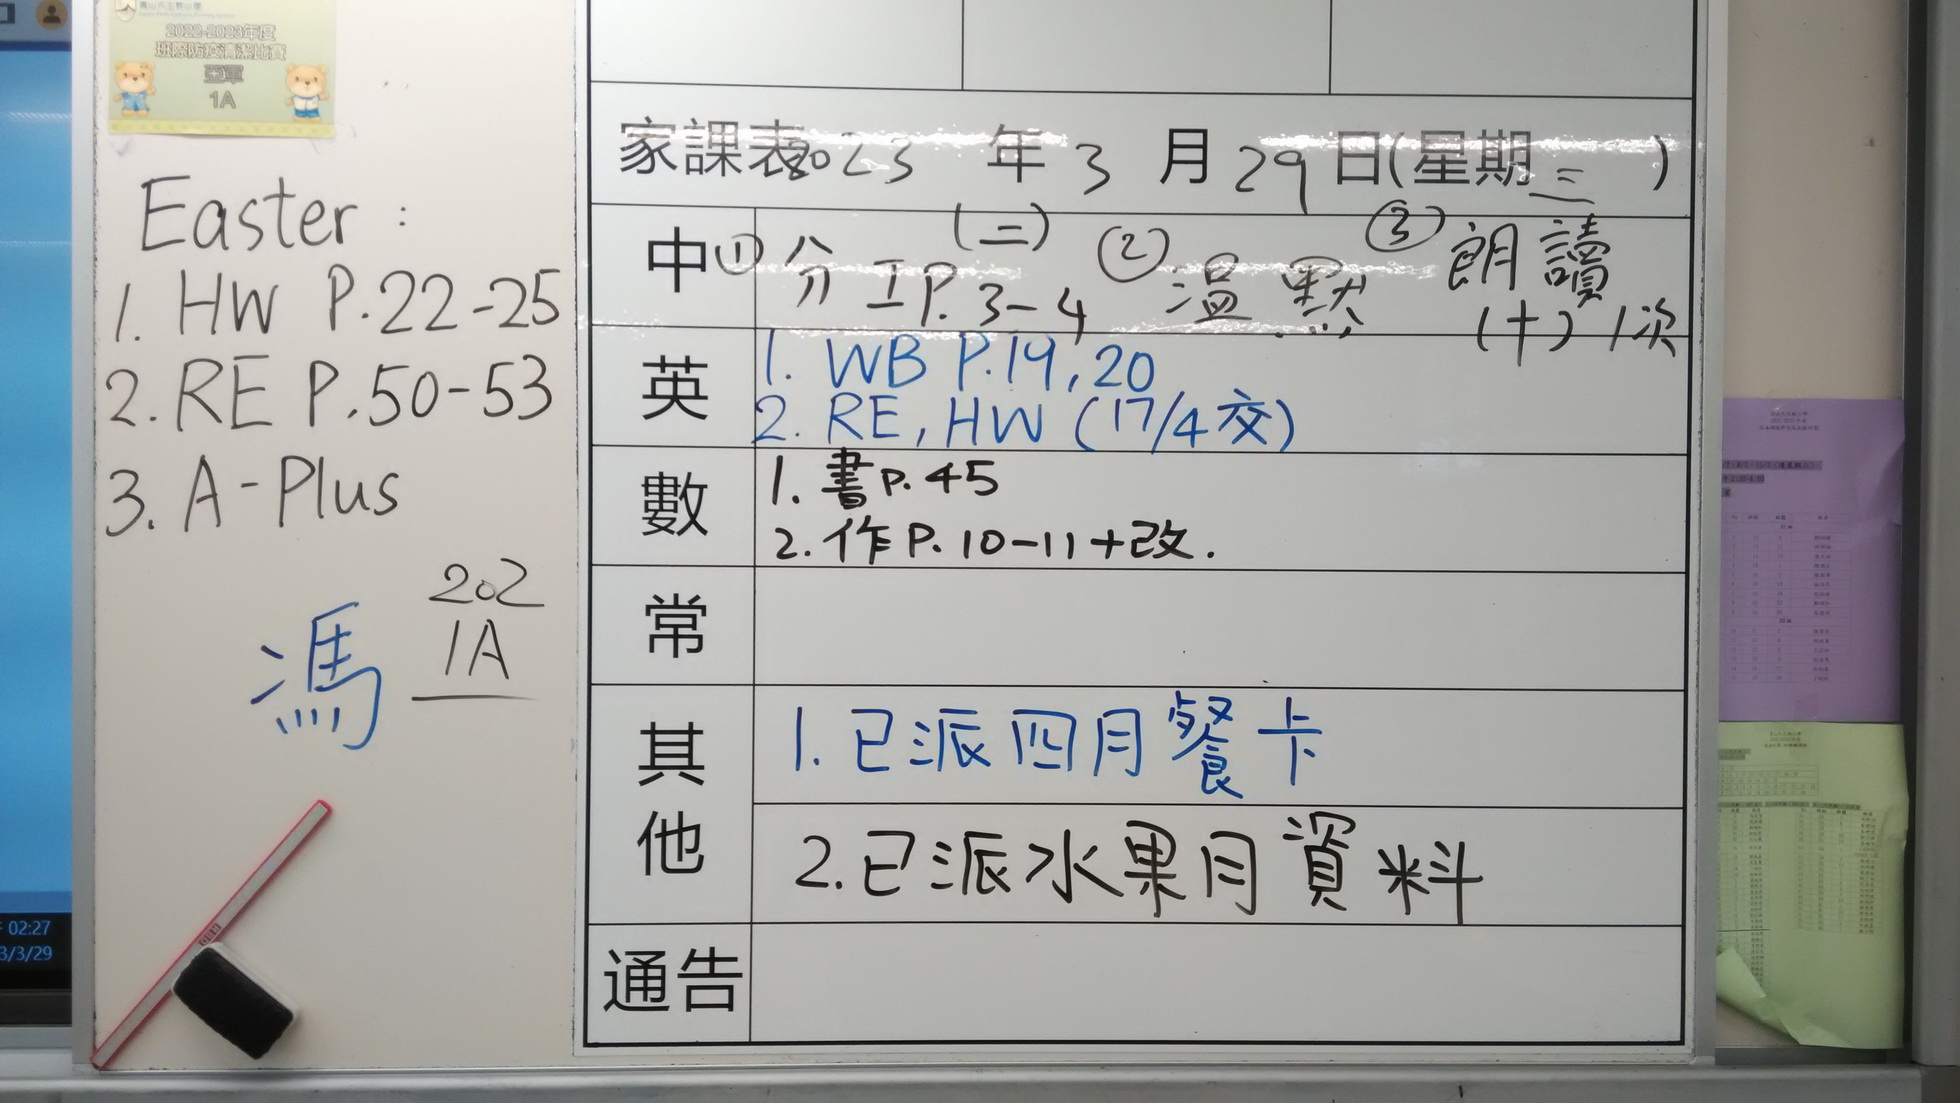 2022-2023年度
班際防疫清潔比賽
亞軍
1A
Easter :
1. HW P.22-25
2. RE P.50-53
3. A-Plus
馮
202
1A
02:27
3/3/29
家課表 2023 年 3 月 29 日(星期三)
中 ① 分工(二) P.3-4 ② 溫默 ③ 朗讀(十) 1次
英 1. WB P.19, 20
2. RE, HW (17/4 交)
數 1. 書 P.45
2. 作 P.10-11+改.
常
其他 1. 已派四月餐卡
2. 已派水果月資料
通告